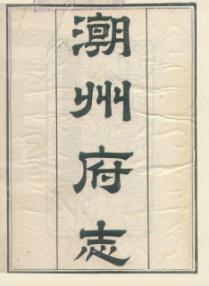 潮州府志